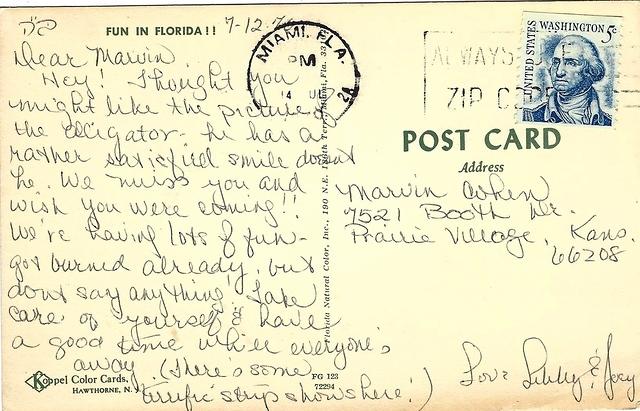 FUN IN FLORIDA!!
7-12-
Dear Marvin,
Hey! Thought you
might like the picture of
the alligator - he has a
rather satisfied smile doesn't
he. We miss you and
wish you were coming!!
We're having lots of fun -
got burned already, but
don't say anything! Take
care of yourself & have
a good time while everyone's
away. (There's some
terrific strip shows here!)
Love Libby & Joey
Koppel Color Cards,
HAWTHORNE, N.
FG 123
72294
Florida Natural Color, Inc., 190 N.E. Terr., Miami, Fla. 33
MIAMI, FLA.
PM
14
2A
ALWAYS USE
ZIP CODE
UNITED STATES
WASHINGTON 5c
POST CARD
Address
Marvin Cohen
7521 Booth Dr.
Prairie Village, Kans.
66208